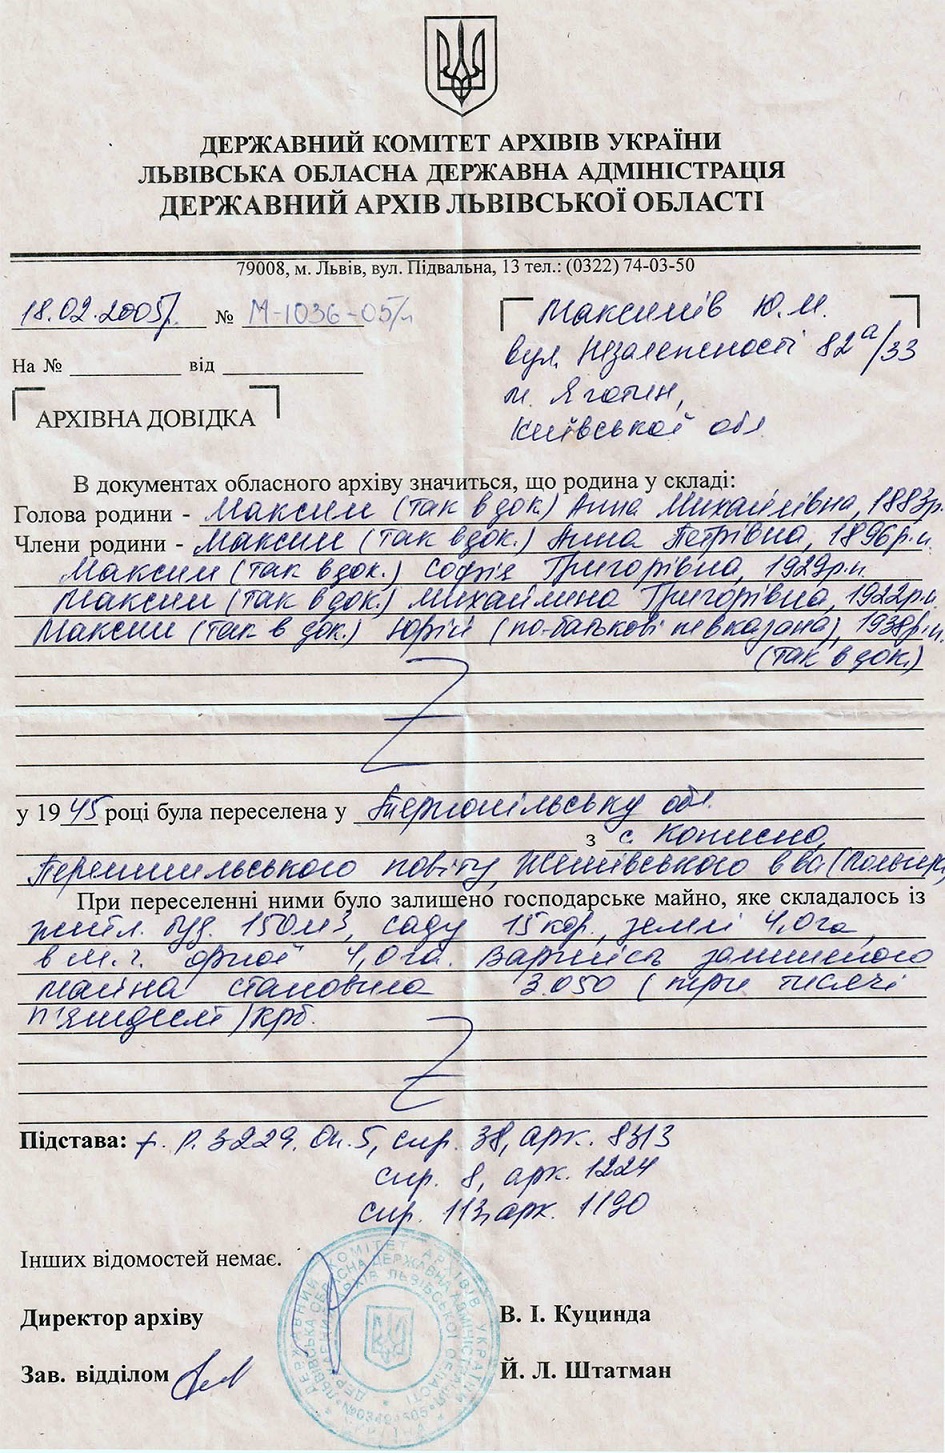 ДЕРЖАВНИЙ КОМІТЕТ АРХІВІВ УКРАЇНИ
ЛЬВІВСЬКА ОБЛАСНА ДЕРЖАВНА АДМІНІСТРАЦІЯ
ДЕРЖАВНИЙ АРХІВ ЛЬВІВСЬКОЇ ОБЛАСТІ
79008, м. Львів, вул. Підвальна, 13 тел.: (0322) 74-03-50
18.02.2005р. № М-1036-05/
Максимів Ю.М.
вул. Незалежності 82а/33
м. Яготин,
Київської обл.
На № від
АРХІВНА ДОВІДКА
В документах обласного архіву значиться, що родина у складі:
Голова родини - Максим (так в док.) Анна Михайлівна, 1883р.
Члени родини - Максим (так в док.) Анна Петрівна, 1896р.н.
Максим (так в док.) Софія Григорівна, 1929р.н.
Максим (так в док.) Михайлина Григорівна, 1922р.н.
Максим (так в док.) Юрій (по-батькові не вказана), 1938р.н.
(так в док.)
у 1945 році була переселена у Тернопільську обл.
з с. Кописно,
Перемишльського повіту, в-ва (Польща)
При переселенні ними було залишено господарське майно, яке складалось із
житл. буд. 150м3, саду 15кор., землі 4,0га,
в т.ч. орної 4,0га. Вартість залишеного
майна становила 3.050 (три тисячі
п'ятдесят) крб.
Підстава: ф. Р.3229. Оп.5, спр. 38, арк. 8313
спр. 8, арк. 1224
спр. 113, арк. 1190
Інших відомостей немає.
Директор архіву В. І. Куцинда
Зав. відділом Й. Л. Штатман
ДЕРЖАВНИЙ КОМІТЕТ АРХІВІВ УКРАЇНИ
ЛЬВІВСЬКА ОБЛАСНА ДЕРЖАВНА АДМІНІСТРАЦІЯ
ДЕРЖАВНИЙ АРХІВ ЛЬВІВСЬКОЇ ОБЛАСТІ